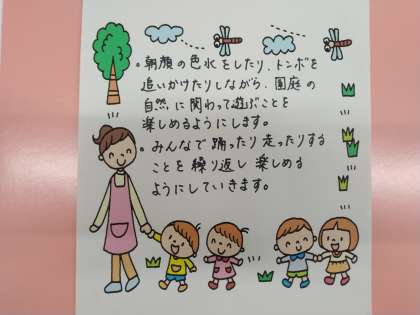 。朝顔の色水をしたり、トンボを
追いかけたりしながら、園庭の
自然に関わって遊ぶことを
楽しめるようにします。
。みんなで踊ったり走ったりする
ことを繰り返し楽しめる
ようにしていきます。